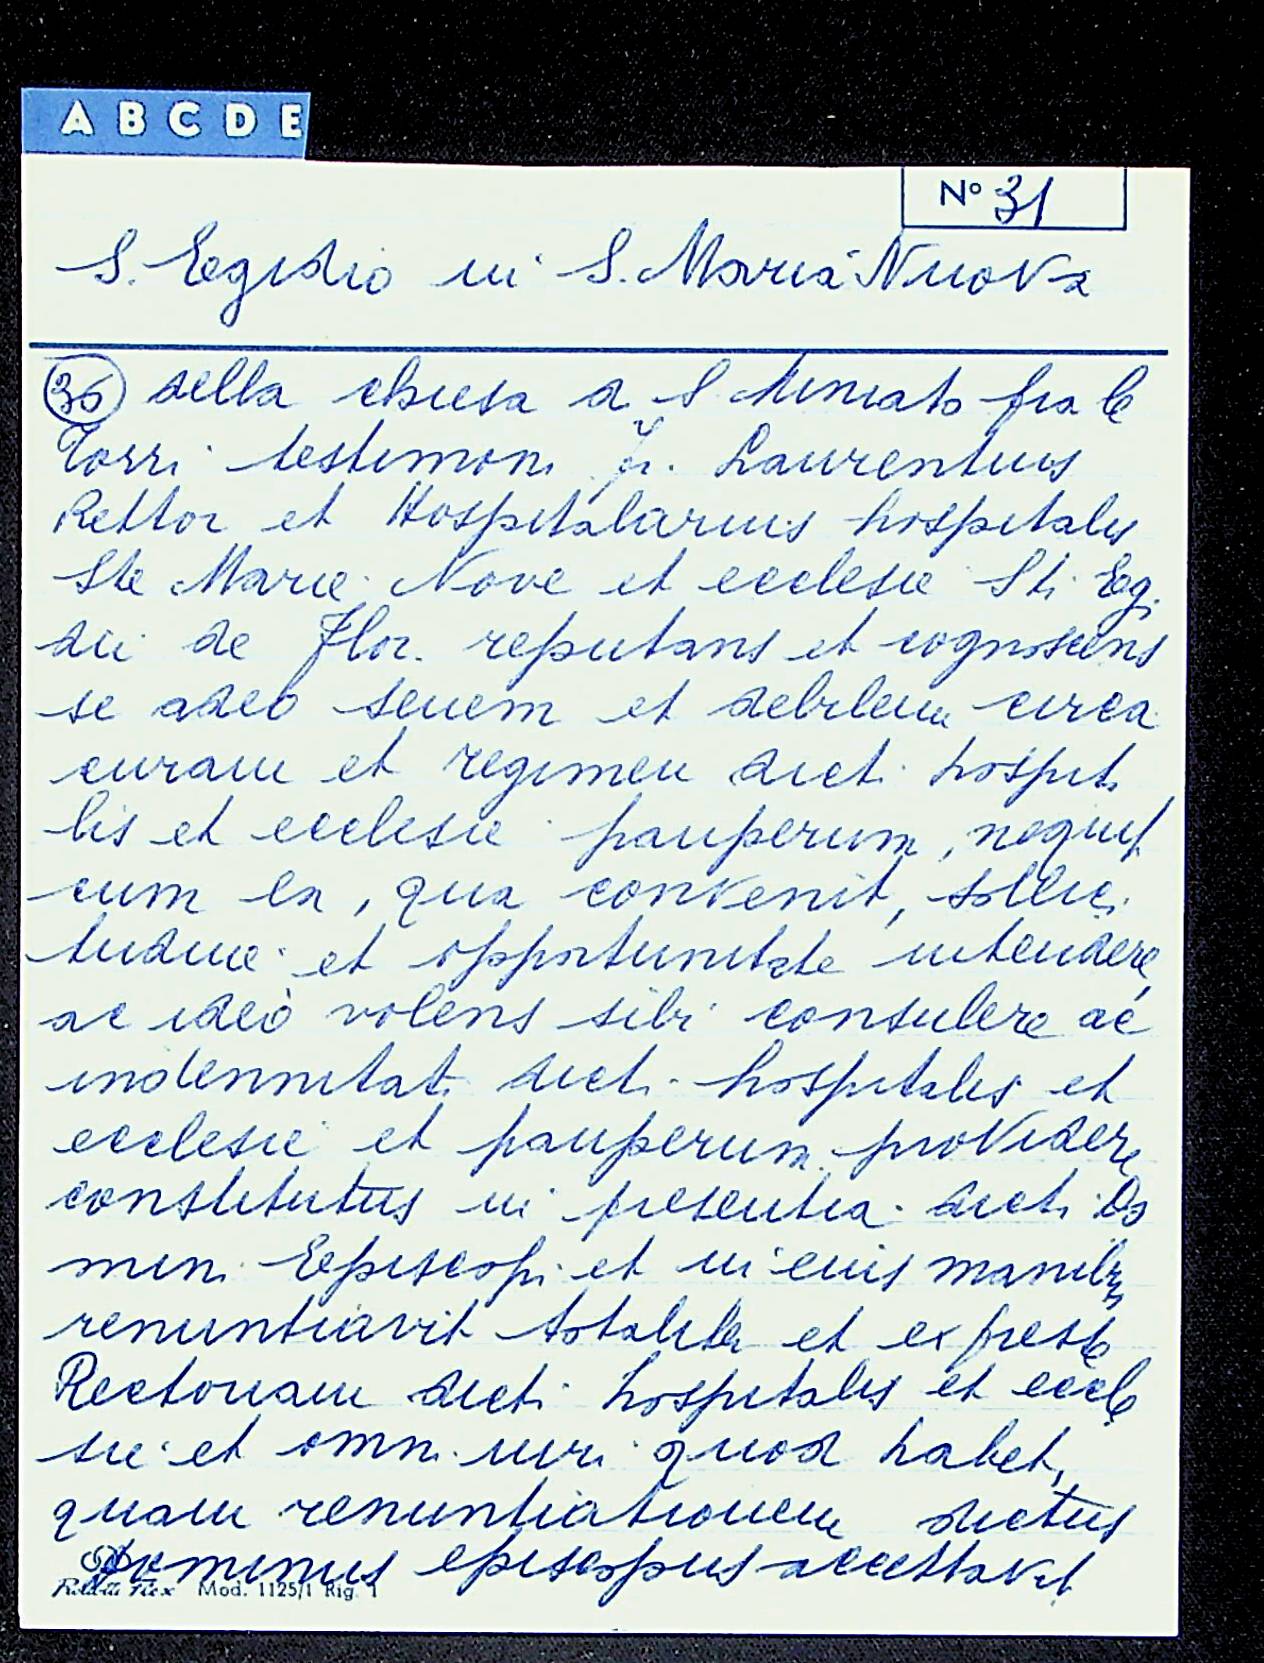 A B C D E
Nº 31
S. Egidio in S. Maria Nuova
36 della chiesa di S Miniato fra le
Torri testimoni fr. Laurentius
Rettor et Hospitalarius hospitalis
Ste Marie Nove et ecclesie Sti Egi
dii de Flor. reputans et cognoscens
se adeo senem et debilem circa
curam et regimen dicti hospita
lis et ecclesie pauperum, nequit
cum ea, qua convenit, sollici
tudine et opportunitate intendere
ac ideo volens sibi consulere ac
indennitati dicti hospitalis et
ecclesie et pauperum providere
constitutus in presentia dicti Do
mini Episcopi et in eius manibus
renuntiavit totaliter et expresse
Rectoriam dicti hospitalis et eccle
sie et omni iuri quod habet,
quam renuntiationem dictus
Dominus episcopus accettavit
Mod. 1125/1 Rig. 1